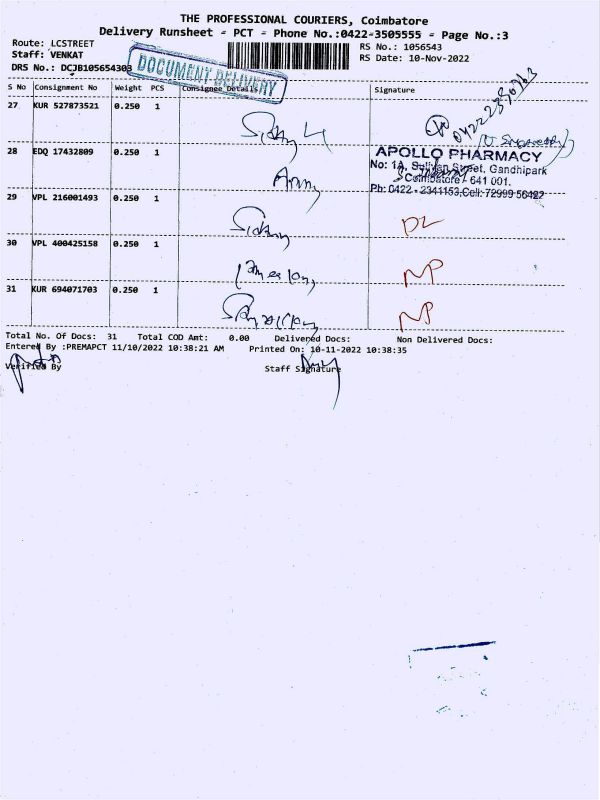 THE PROFESSIONAL COURIERS, Coimbatore
Delivery Runsheet - PCT - Phone No.:0422-3505555 - Page No.:3
Route: LCSTREET
RS No.: 1056543
Staff: VENKAT
RS Date: 10-Nov-2022
DRS No.: DCJB105654303
DOCUMENT DELIVERY
S No Consignment No Weight PCS Consignee Details Signature
27 KUR 527873521 0.250 1
28 EDQ 17432809 0.250 1
APOLLO PHARMACY
No: 1A, Sullivan Street, Gandhipark
Coimbatore - 641 001.
Ph: 0422 - 2341153,Cell: 72999 56422
29 VPL 216001493 0.250 1
DL
30 VPL 400425158 0.250 1
NP
31 KUR 694071703 0.250 1
NP
Total No. Of Docs: 31 Total COD Amt: 0.00 Delivered Docs: Non Delivered Docs:
Entered By :PREMAPCT 11/10/2022 10:38:21 AM Printed On: 10-11-2022 10:38:35
Verified By Staff Signature